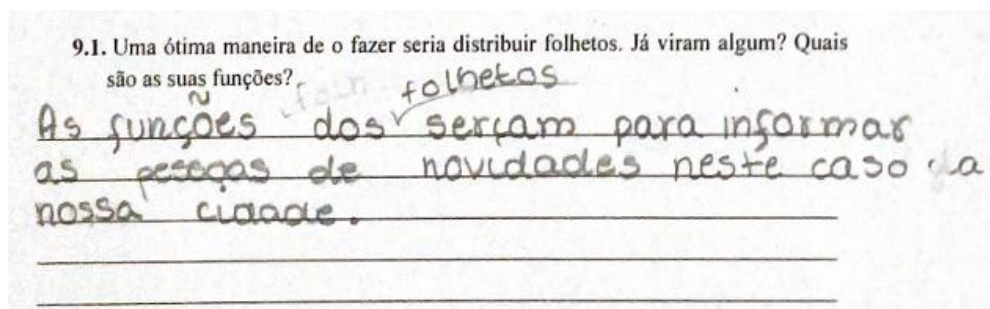 9.1. Uma ótima maneira de o fazer seria distribuir folhetos. Já viram algum? Quais
são as suas funções?
folhetos
As funções dos serçam para informar
as pessoas de novidades neste caso da
nossa cidade.